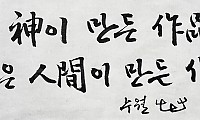 神이 만든 作品
은 人間이 만든 작
수월